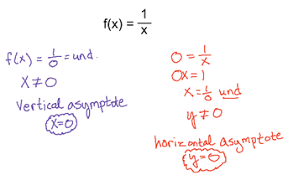 f(x) = 1/x
f(x) = 1/0 = und.
x ≠ 0
vertical asymptote
x=0
0 = 1/x
0x = 1
x = 1/0 und
y ≠ 0
horizontal asymptote
y=0